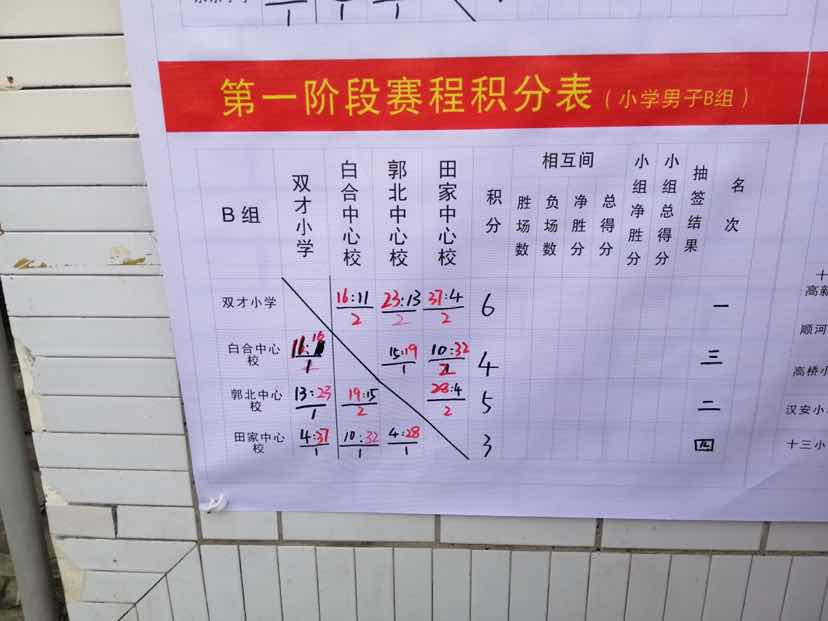 第一阶段赛程积分表（小学男子B组）
B组 双才小学 白合中心校 郭北中心校 田家中心校 积分 相互间 胜场数 负场数 净胜分 总得分 小组净胜分 小组总得分 抽签结果 名次
双才小学 16:11 2 23:13 2 37:4 2 6 一
白合中心校 11:16 1 15:19 1 10:32 2 4 三
郭北中心校 13:23 1 19:15 2 28:4 2 5 二
田家中心校 4:37 1 10:32 1 4:28 1 3 四
高新
顺河
高桥小
汉安小
十三小